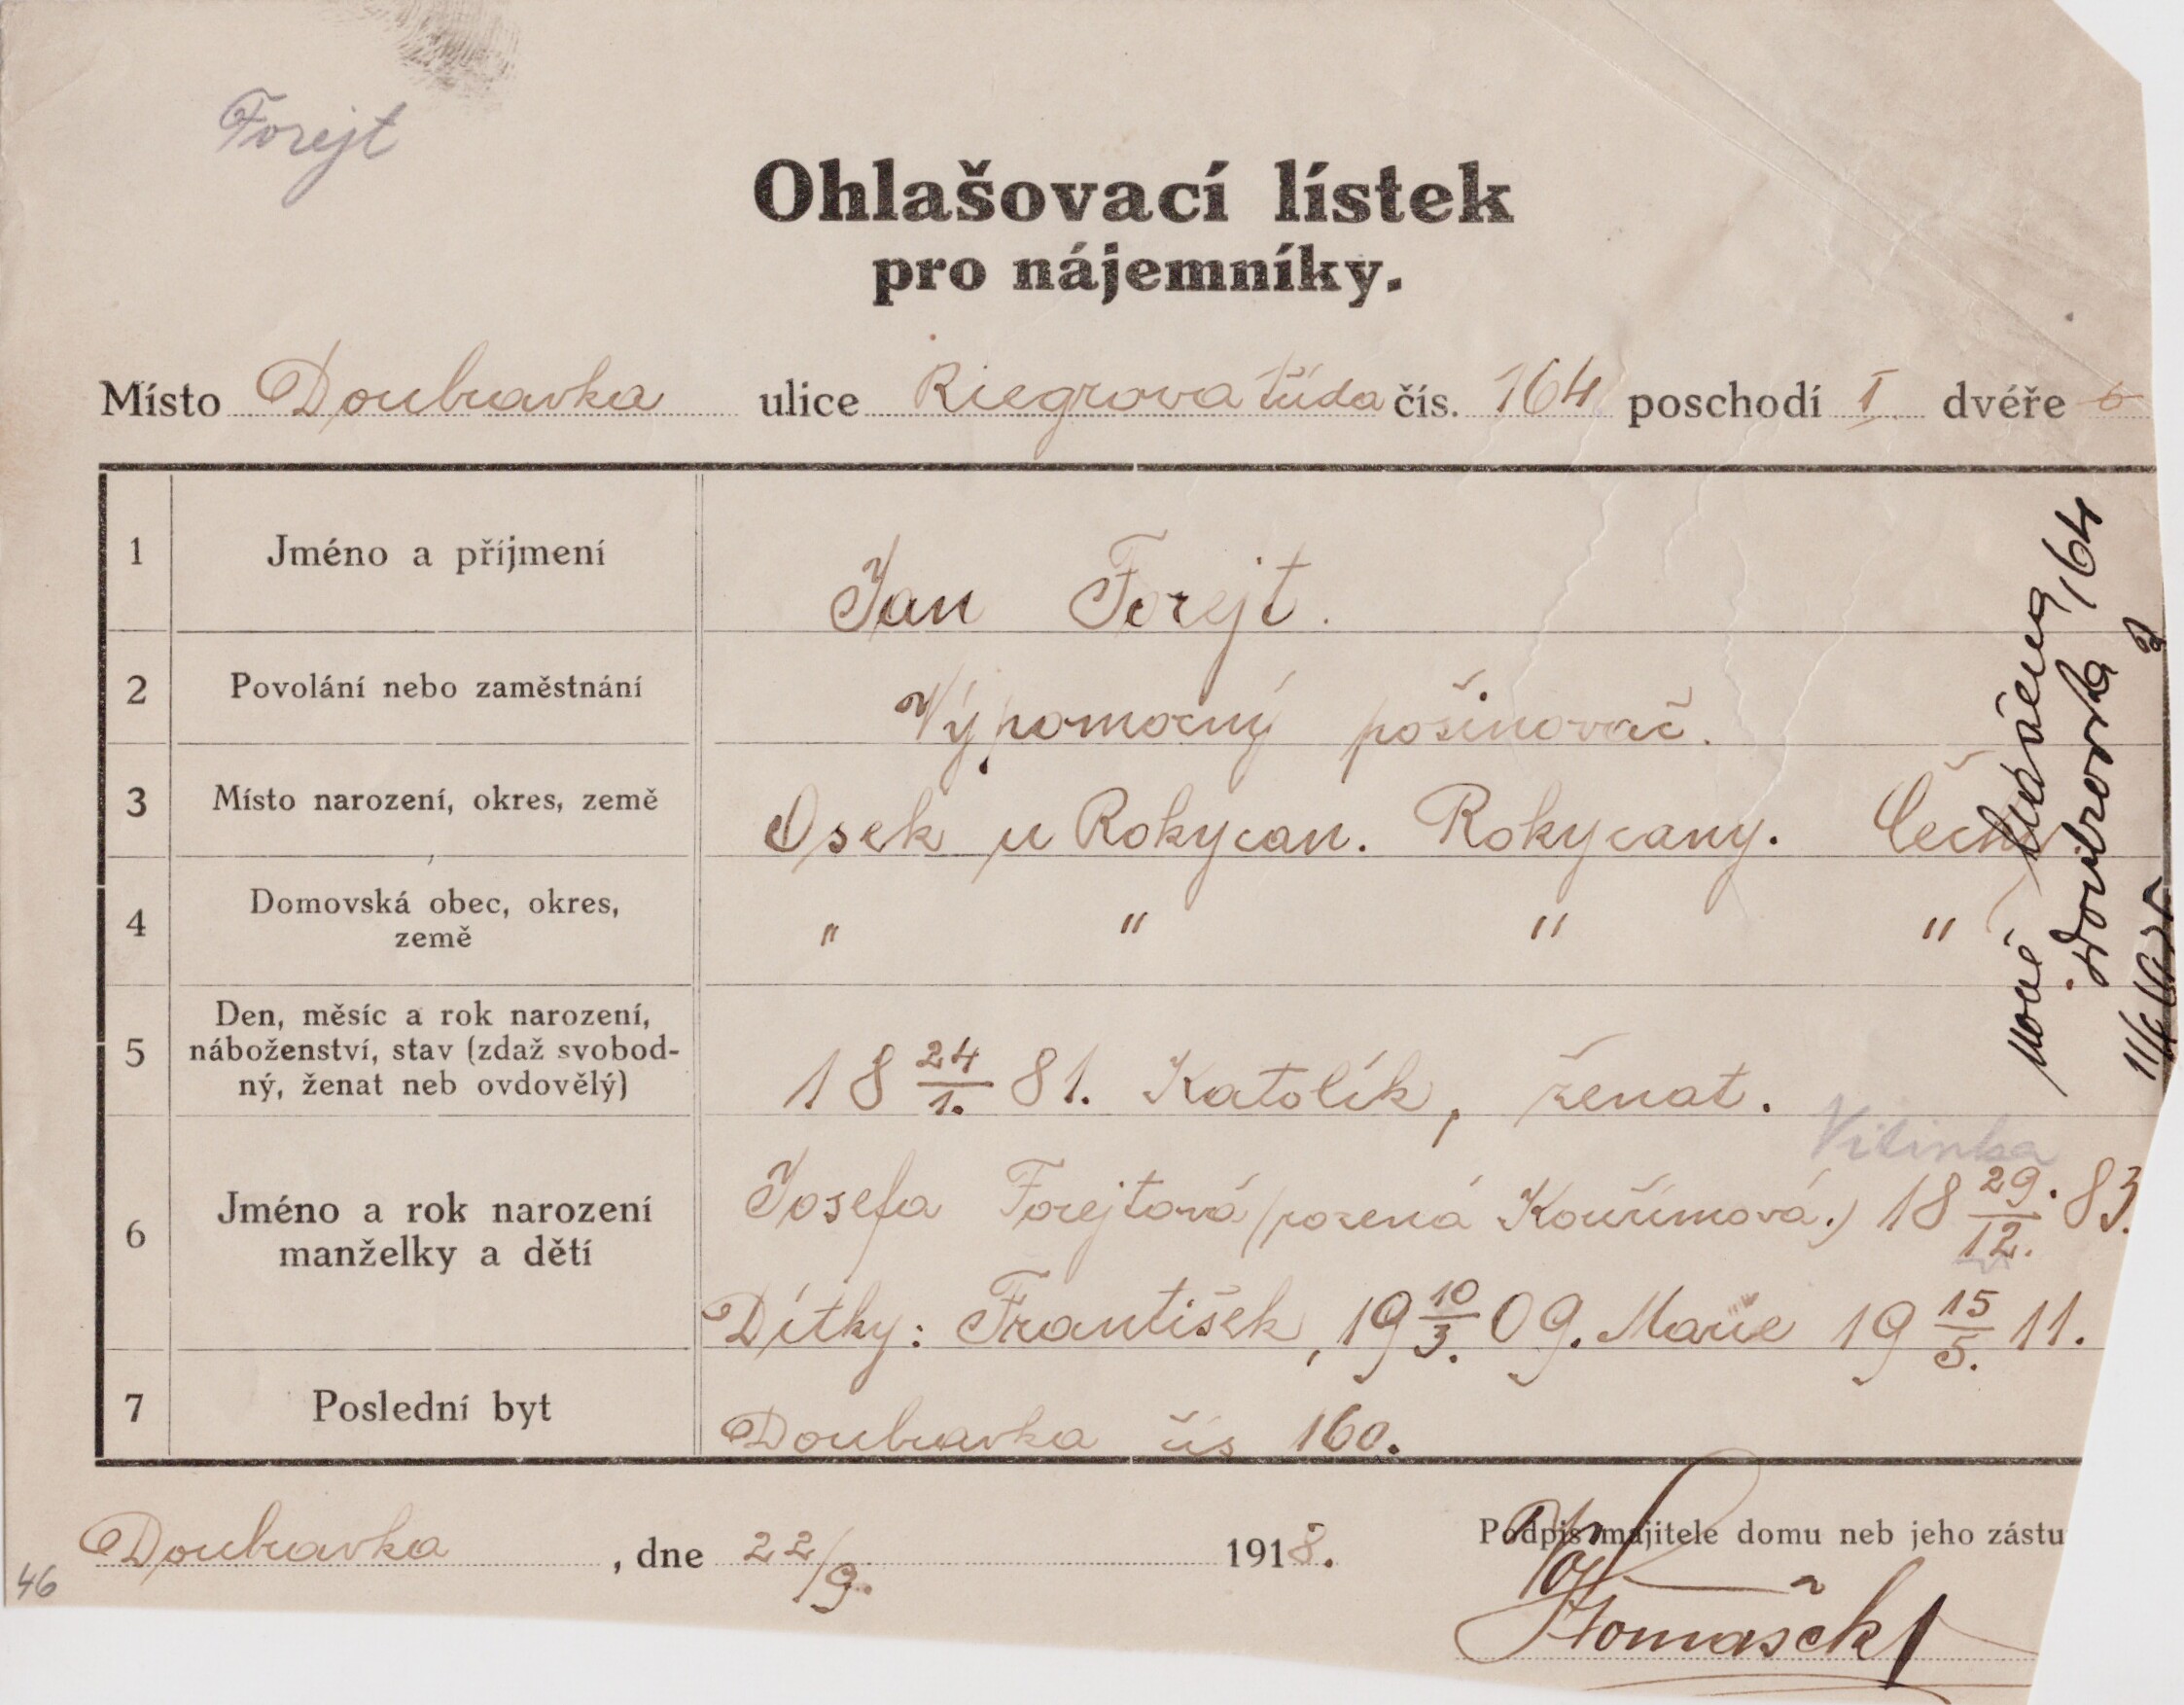 Forejt
Ohlašovací lístek
pro nájemníky.
Místo Doubravka ulice Riegrova třída čís. 164 poschodí I dvéře 6
1 Jméno a příjmení Jan Forejt.
2 Povolání nebo zaměstnání Výpomocný pošinovač.
3 Místo narození, okres, země Osek u Rokycan. Rokycany. Čechy
4 Domovská obec, okres, země " " " "
5 Den, měsíc a rok narození, náboženství, stav (zdaž svobod-
ný, ženat neb ovdovělý) 18 24/1. 81. Katolík, ženat.
Vitinka
6 Jméno a rok narození manželky a dětí Josefa Forejtová (rozená Kouřimová.) 18 29./12. 83.
Dítky: František, 19 10/3. 09. Marie 19 15/5. 11.
7 Poslední byt Doubravka čís 160.
Doubravka, dne 22/9. 1918.
Podpis majitele domu neb jeho zástu
46
nově
Doubravka 164